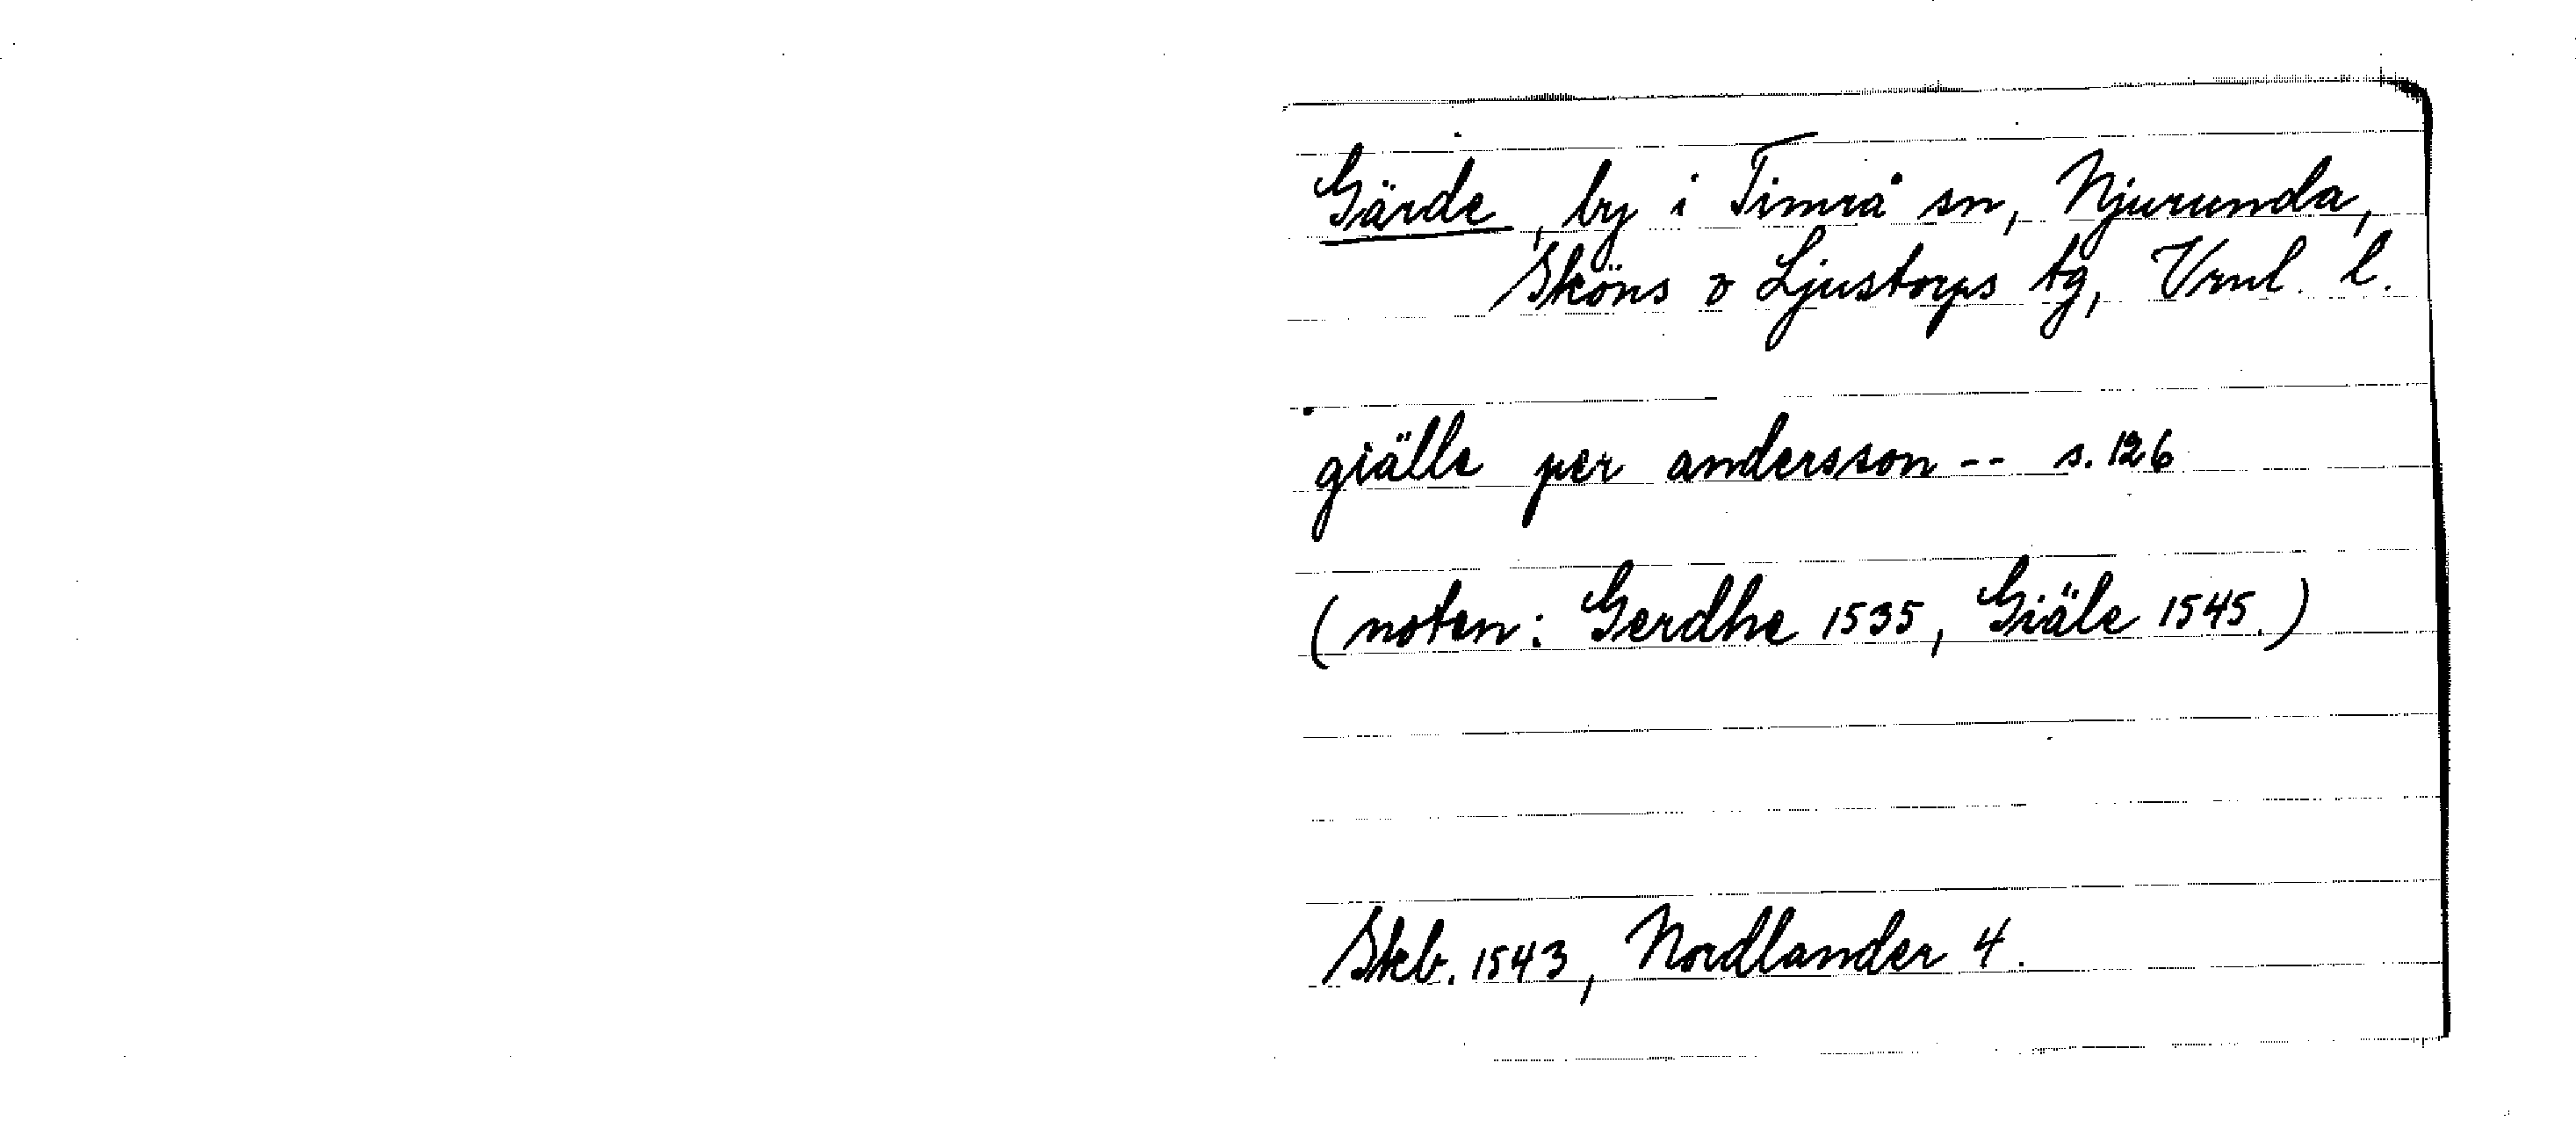 Gärde, by i Timrå sn, Njurunda,
Sköns o Ljustorps tg, Vrnl. l.
giälle per andersson -- s. 126
(noten: Gerdhe 1535, Giäle 1545.)
Skb. 1543, Nordlander 4.